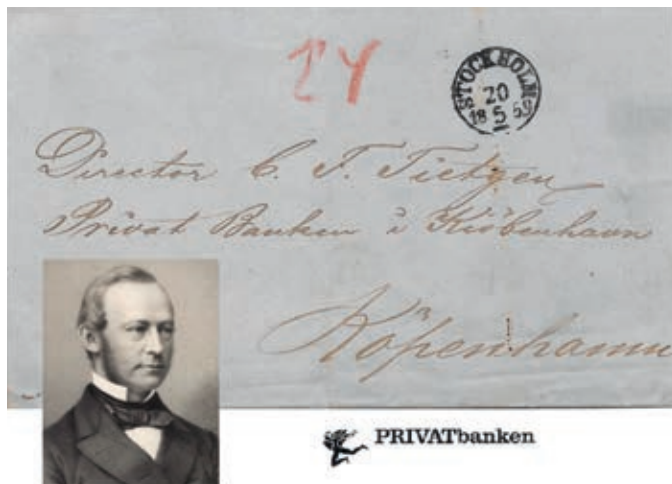 24
STOCKHOLM
20
18 5 69
Director C. F. Tietgen
Privat Banken i Kiöbenhavn
Köpenhamn
PRIVATbanken